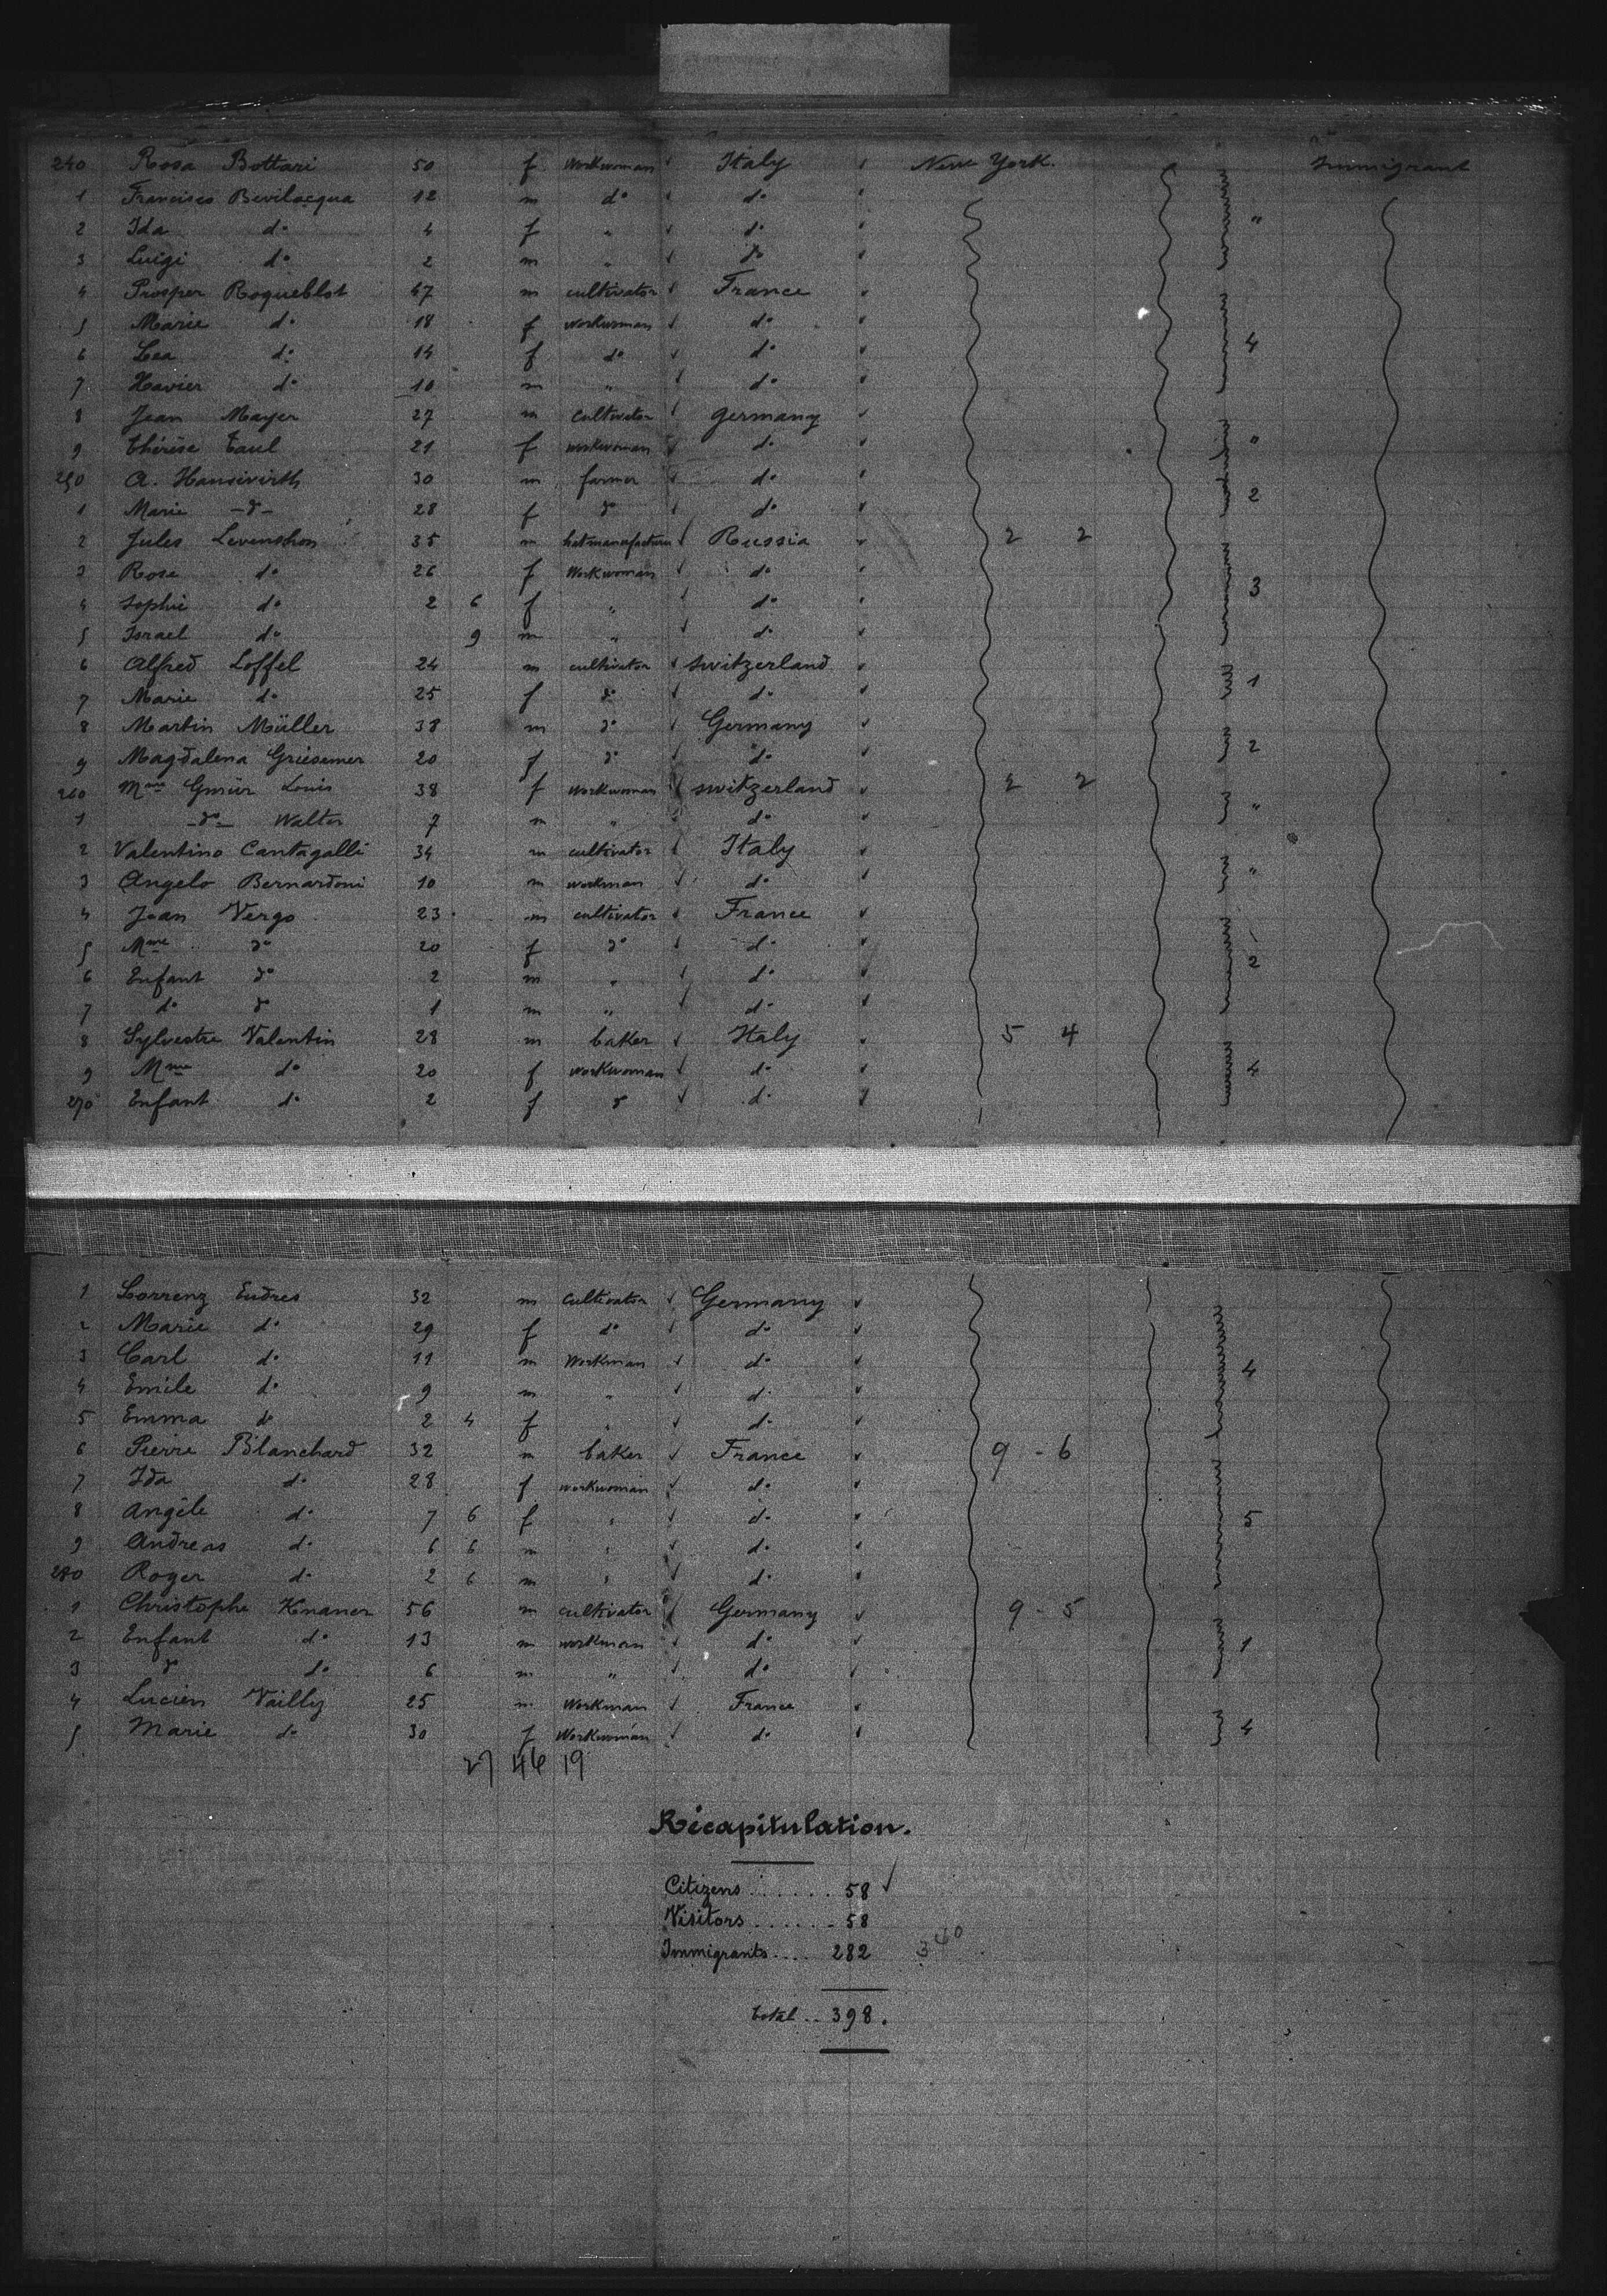 240 Rosa Bottari 50 f Workwoman Italy New York. Immigrant
1 Francisco Bevilacqua 12 m do do "
2 Ida do 4 f " do
3 Luigi do 2 m " do
4 Prosper Roqueblot 47 m cultivator France
5 Marie do 18 f workwoman do 4
6 Lea do 14 f do do
7 Xavier do 10 m " do
8 Jean Mayer 27 m cultivator Germany
9 Thérèse Taul 21 f workwoman do "
250 A. Hansivirth 30 m farmer do 2
1 Marie -do- 28 f do do
2 Jules Levenshon 35 m hatmanufacture Russia 2 2
3 Rosa do 26 f Workwoman do 3
4 Sophie do 2 6 f " do
5 Israel do 9 m " do
6 Alfred Loffel 24 m cultivator switzerland 1
7 Marie do 25 f do do
8 Martin Müller 38 m do Germany 2
9 Magdalena Griesemer 20 f do do
260 Mme Louis 38 f Workwoman switzerland 2 2
1 -do- Walter 7 m " do "
2 Valentino Cantagalli 34 m cultivator Italy
3 Angelo Bernardoni 10 m workman do "
4 Jean Vergo 23 m cultivator France
5 Mme do 20 f do do 2
6 Enfant do 2 m " do
7 do do 1 m " do
8 Sylvestre Valentin 28 m baker Italy 5 4
9 Mme do 20 f workwoman do 4
270 Enfant do 2 f do do
1 Lorrenz Endres 32 m Cultivator Germany
2 Marie do 29 f do do
3 Carl do 11 m Workman do 4
4 Emile do 9 m " do
5 Emma do 2 4 f " do
6 Pierre Blanchard 32 m baker France 9 - 6
7 Ida do 28 f workwoman do
8 Angèle do 7 6 f " do 5
9 Andreas do 6 6 m " do
280 Roger do 2 6 m " do
1 Christophe Knaner 56 m cultivator Germany 9 - 5
2 Enfant do 13 m workman do 1
3 do do 6 m " do
4 Lucien Vailly 25 m Workman France
5 Marie do 30 f Workwoman do 4
27 46 19
Récapitulation.
Citizens ...... 58 ✓
Visitors ...... 58
Immigrants.... 282 340
total .. 398.